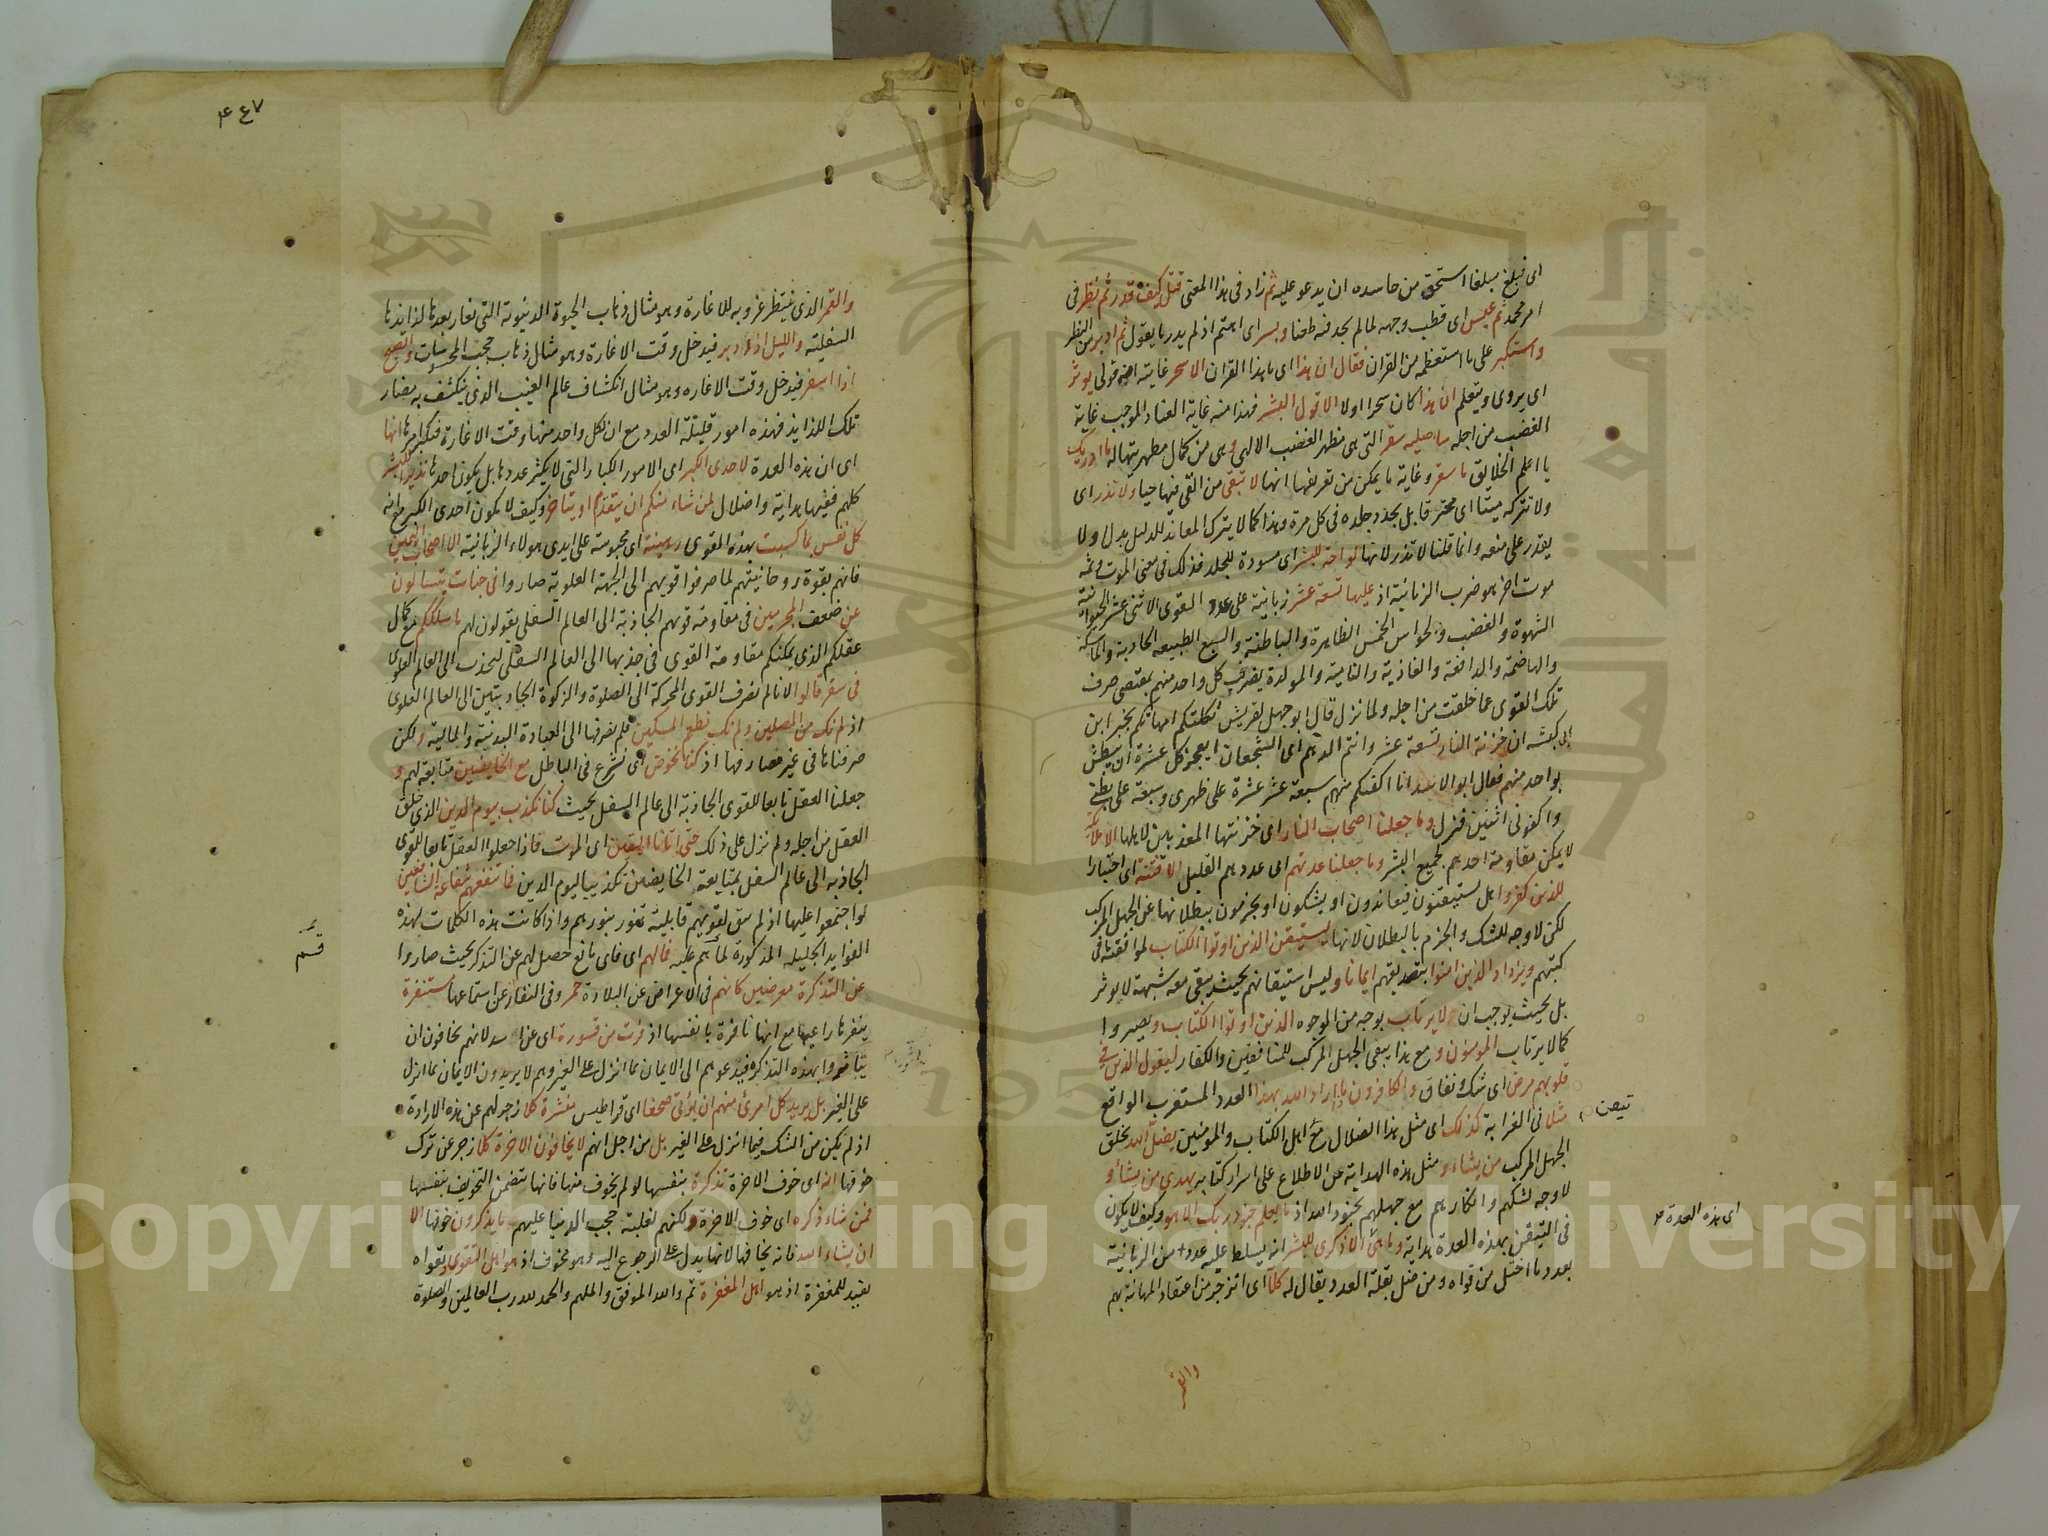 اى فبلغ مبلغا استحق من حاسده ان يدعو عليه ثم زاد فى هذا المعنى قتل كيف قدر ثم نظر فى
امر محمد ثم عبس اى قطب وجهه لما لم يجد فيه طعنا وبسر اى اهتم اذ لم يدر ما يقول ثم ادبر من النظر
واستكبر على ما استعظمه من القران فقال ان هذا اى ما هذا القران الا سحر غايته انه قولى يوثر
اى يروى ويتعلم ان هذا كان سحرا اولا الا قول البشر فهذا منه غاية العناد الموجب غاية
الغضب من اجله ساصليه سقر التى هى مظهر الغضب الالهى وهى من كمال مظهريتها له ما ادريك
يا اعلم الخلايق ما سقر وغاية ما يمكن من تعريفها انها لا تبقى من القى فيها حيا ولا تذر اى
ولا تتركه ميتا اى محترقا بل يجدد جلده فى كل مرة وهذا كما لا يترك المعاند للدليل بدل ولا
يقدر على منعه وانما قلنا لا تذر لانها لواحة للبشر اى مسودة للجلد فذلك فى معنى الموت وثمه
موت اخر هو ضرب الزبانية اذ عليها تسعة عشر زبانية على عدد القوى الاثنى عشر الحيوانية
الشهوة والغضب والحواس الخمس الظاهرة والباطنة والسبع الطبيعيه الجاذبة والماسكة
والهاضمة والدافعة والغاذية والنامية والمولدة يضرب كل واحد منهم بمقتضى صرف
تلك القوى عما خلقت من اجله ولما نزل قال ابو جهل لقريش ثكلتكم امهاتكم يخبر ابن
ابى كبشه ان خزنة النار تسعة عشر وانتم الدهم اى الشجعان ايعجز كل عشرة ان يبطش
بواحد منهم فقال ابو الاشد انا اكفيكم منهم سبعة عشر عشرة على ظهرى وسبعة على بطنى
واكفونى اثنين فنزل وما جعلنا اصحاب النار اى خزنتها المعذبين لاهلها الا ملائكة
لا يمكن مقاومة احدهم لجميع البشر وما جعلنا عدتهم اى عددهم القليل الا فتنة اى اختبارا
للذين كفروا هل يستيقنون فيعاندون او يشكون او يجزمون ببطلانها عن الجهل المركب
لكن لا وجه للشك والجزم بالبطلان لانها ليستيقن الذين اوتوا الكتاب لموافقته فى
كتبهم ويزداد الذين امنوا بتصديقهم ايمانا وليس استيقانهم بحيث يبقى معه شبهة لا يوثر
بل بحيث يوجب ان لا يرتاب بوجه من الوجوه الذين اوتوا الكتاب ويصيروا
كما لا يرتاب المومنون و مع هذا يبقى الجهل المركب للمنافقين والكفار ليقول الذين فى
قلوبهم مرض اى شك ونفاق والكافرون ماذا اراد الله بهذا العدد المستغرب الواقع
مثلا فى الغرابة كذلك اى مثل هذا الضلال مع اهل الكتاب والمومنين يضل الله بخلق
الجهل المركب من يشاء و مثل هذه الهداية من الاطلاع على اسرار كتابه يهدى من يشاء و
لا وجه لشكهم وانكارهم مع جهلهم بجنود الله اذ ما يعلم جنود ربك الا هو وكيف لا يكون
فى التيقن بهذه العدة هداية وما هى الا ذكرى للبشر انه يسلط عليه عدد من الزبانية
بعدد ما اختل من قواه ومن ضل بقلة العدد يقال له كلا اى انزجر من اعتقاد المهانة بهم
تيقن
اى هذه العدة
والقمر
٤٤٧
والقمر الذى ينتظر غروبه للاغارة وهو مثال ذهاب الحيوة الدنيوية التى تغار بعدها لذايذها
السفلية والليل اذا ادبر فيدخل وقت الاغارة وهو مثال ذهاب حجب المحسوسات والصبح
اذا اسفر فيدخل وقت الاغاره وهو مثال انكشاف عالم الغيب الذى ينكشف به مضار
تلك اللذايذ فهذه امور قليلة العدد مع ان لكل واحد منها وقت الاغارة فكرامها انها
اى ان هذه العدة لاحدى الكبر اى الامور الكبار التى لا يكثر عددها بل يكون احدها نذيرا للبشر
كلهم ففيها هداية واضلال لمن شاء منكم ان يتقدم او يتاخر وكيف لا يكون احدى الكبر مع انه
كل نفس بما كسبت بهذه القوى رهينة اى محبوسة على ايدى هولاء الزبانية الا اصحاب اليمين
فانهم بقوة روحانيتهم لما صرفوا قويهم الى الجهة العلوية صاروا فى جنات يتسالون
عن ضعف المجرمين فى مقاومة قويهم الجاذبة الى العالم السفلى يقولون لهم ما سلككم مع كمال
عقلكم الذى يمكنكم مقاومة القوى فى جذبها الى العالم السفلى ليجذب الى العالم العلوى
فى سقر قالوا لانا لم نصرف القوى المحركة الى الصلوة والزكوة الجاذبتين الى العالم العلوى
اذ لم نك من المصلين ولم نك نطعم المسكين فلم نصرفها الى العبادة البدنية والمالية ولكن
صرفناها فى غير مصارفها اذ كنا نخوض اى نشرع فى الباطل مع الخايضين متابعة لهم و
جعلنا العقل تابعا للقوى الجاذبة الى عالم السفل بحيث كنا نكذب بيوم الدين الذى خلق
العقل من اجله ولم نزل على ذلك حتى اتانا اليقين اى الموت فاذا جعلوا العقل تابعا للقوى
الجاذبه الى عالم السفل بمتابعة الخايضين تكذيبا ليوم الدين فما تنفعهم شفاعة الشافعين
لو اجتمعوا عليها اذ لم يبق لقويهم قابلية تنور بنورهم واذا كانت هذه الكلمات بهذه
الفوايد الجليله المذكورة لما هم عليه فما لهم اى فاى مانع حصل لهم عن التذكر بحيث صاروا
عن التذكرة معرضين كانهم فى الاعراض عن البلادة حمر وفى النفار عن استماعها مستنفرة
ينفرها راعيها مع انها نافرة بانفسها اذ فرت من قسورة اى عن اسد لانهم يخافون ان
يتاثروا بهذه التذكرة فيدعوهم الى الايمان بما انزل على الغير وهم لا يريدون الايمان بما انزل
على الغير بل يريد كل امرئ منهم ان يؤتى صحفا اى قراطيس منشرة كلا زجر لهم عن هذه الارادة
اذ لم يكن من الشك فيما انزل على الغير بل من اجل انهم لا يخافون الاخرة كلا زجر عن ترك
خوفها انه اى خوف الاخرة تذكرة بنفسها لو لم يخوف منها فانها تتضمن التخويف بنفسها
فمن شاء ذكره اى خوف الاخرة ولكنهم لغلبة حجب الدنيا عليهم ما يذكرون خوفها الا
ان يشاء الله فانه يخافها لانها يدل على الرجوع اليه وهو مخوف اذ هو اهل التقوى وتقواه
يفيد للمغفرة اذ هو اهل المغفرة تم والله الموفق والملهم والحمد لله رب العالمين والصلوة
قسم
Copyright © King Saud University
1957